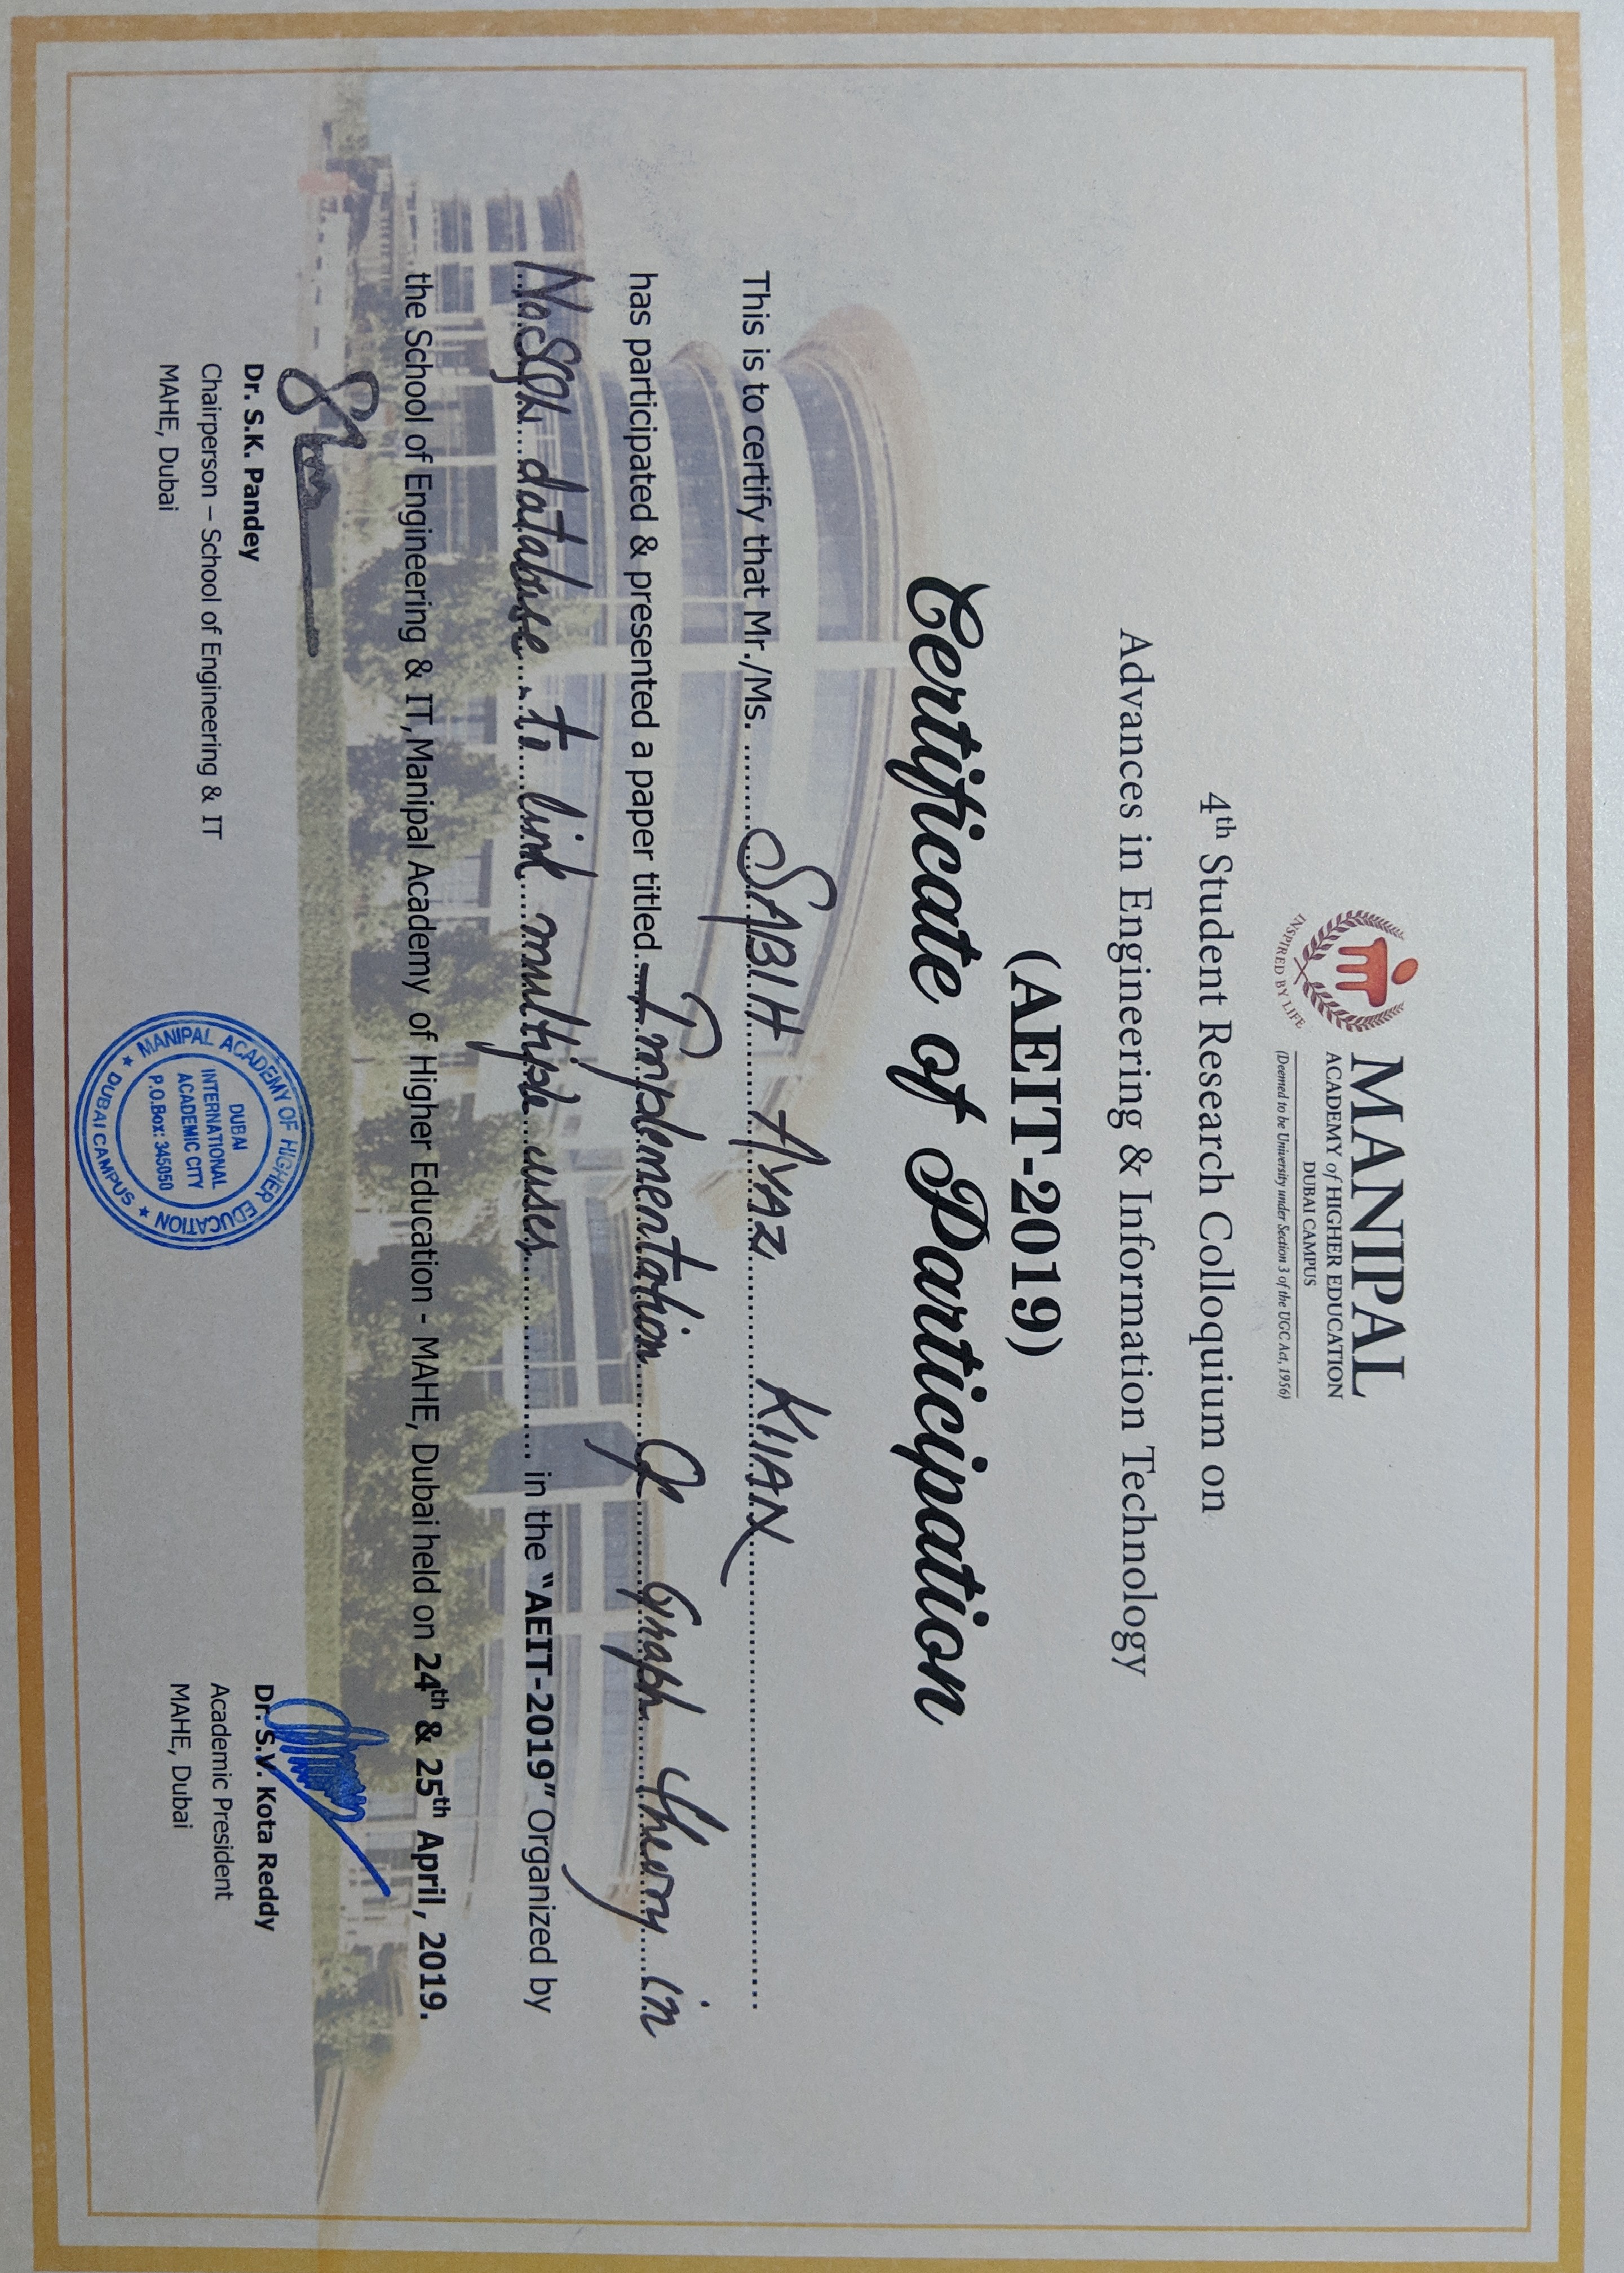 MANIPAL
ACADEMY of HIGHER EDUCATION
DUBAI CAMPUS
(Deemed to be University under Section 3 of the UGC Act, 1956)
INSPIRED BY LIFE
4th Student Research Colloquium on
Advances in Engineering & Information Technology
(AEIT-2019)
Certificate of Participation
This is to certify that Mr./Ms. SABIH AYAZ KHAN
has participated & presented a paper titled Implementation Of Graph theory in
NoSQL database to link multiple uses in the “AEIT-2019” Organized by
the School of Engineering & IT, Manipal Academy of Higher Education - MAHE, Dubai held on 24th & 25th April, 2019.
Dr. S.K. Pandey
Chairperson – School of Engineering & IT
MAHE, Dubai
MANIPAL ACADEMY OF HIGHER EDUCATION
★ DUBAI CAMPUS ★
DUBAI
INTERNATIONAL
ACADEMIC CITY
P.O.Box: 345050
Dr. S.V. Kota Reddy
Academic President
MAHE, Dubai